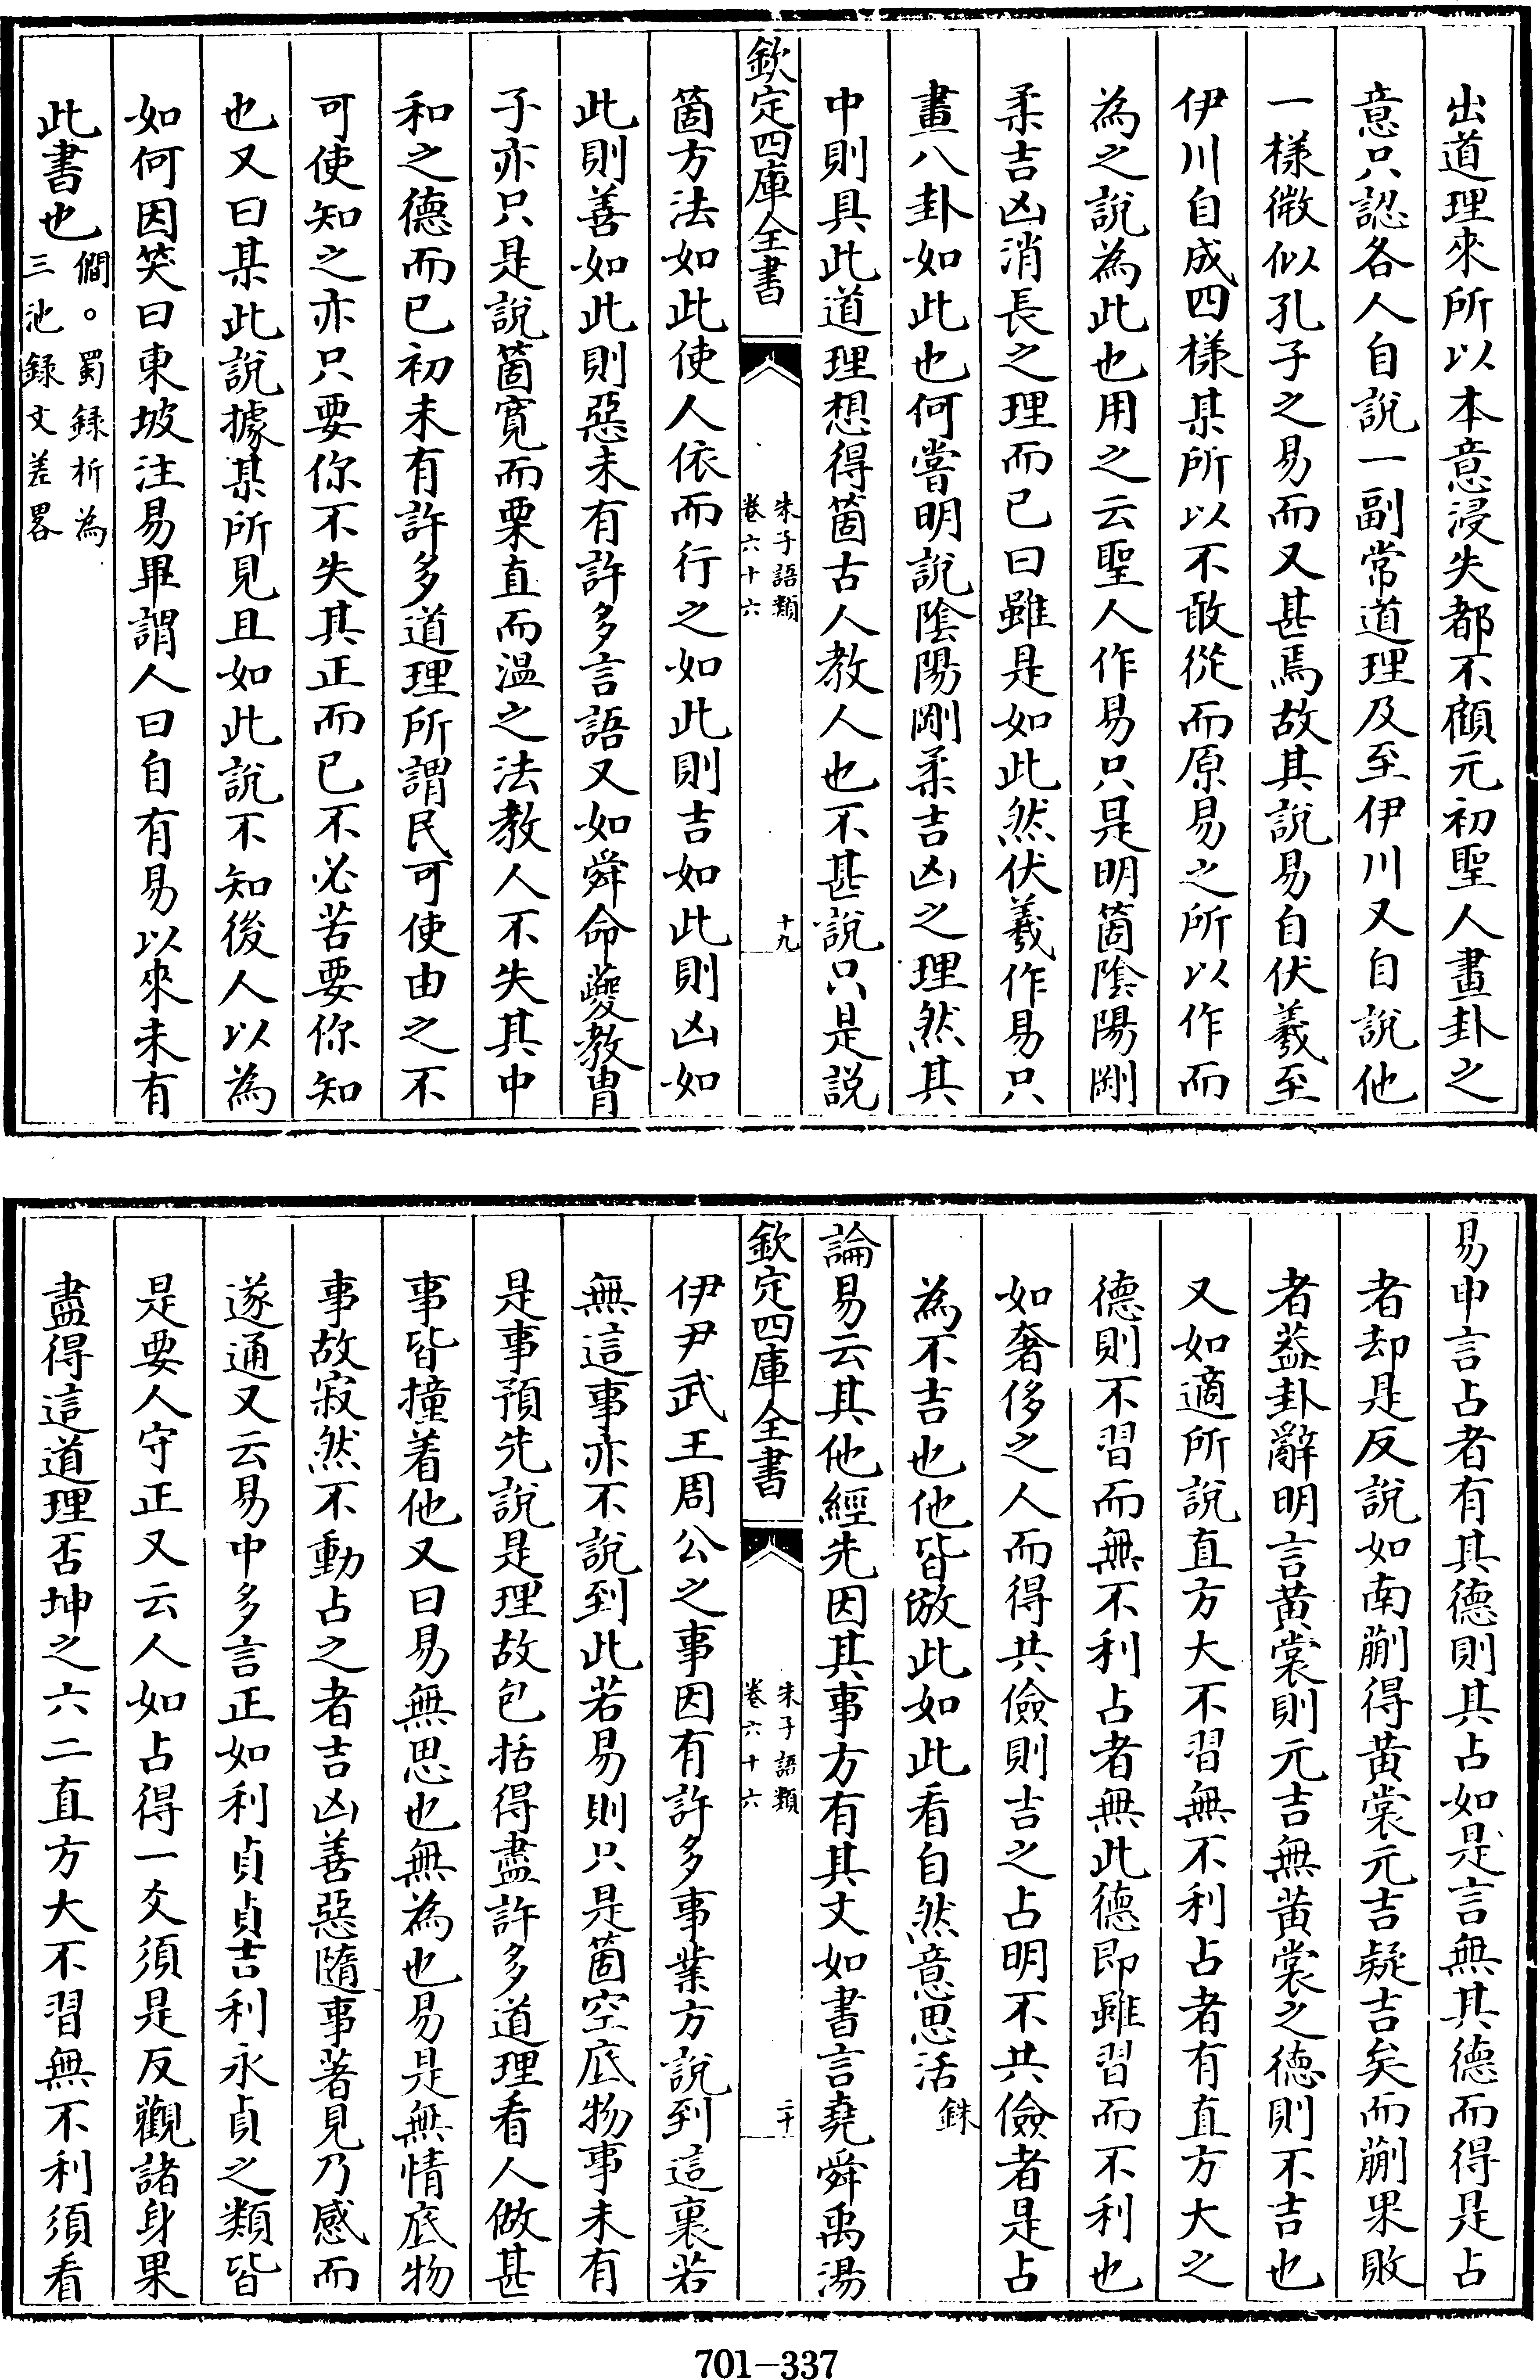 出道理來所以本意浸失都不顧元初聖人畫卦之
意只認各人自說一副當道理及至伊川又自說他
一樣微似孔子之易而又甚焉故其說易自伏羲至
伊川自成四樣某所以不敢從而原易之所以作而
為之說為此也用之云聖人作易只是明箇陰陽剛
柔吉凶消長之理而已曰雖是如此然伏羲作易只
畫八卦如此也何嘗明說陰陽剛柔吉凶之理然其
中則具此道理想得箇古人教人也不甚說只是說
欽定四庫全書
朱子語類
卷六十六
十九
箇方法如此使人依而行之如此則吉如此則凶如
此則善如此則惡未有許多言語又如舜命夔教冑
子亦只是說箇寬而栗直而溫之法教人不失其中
和之德而已初未有許多道理所謂民可使由之不
可使知之亦只要你不失其正而已不必苦要你知
也又曰某此說據某所見且如此說不知後人以為
如何因笑曰東坡注易畢謂人曰自有易以來未有
此書也
僩。蜀錄析為
三池錄文差畧
易中言占者有其德則其占如是言無其德而得是占
者却是反說如南蒯得黃裳元吉疑吉矣而蒯果敗
者葢卦辭明言黃裳則元吉無黃裳之德則不吉也
又如適所說直方大不習無不利占者有直方大之
德則不習而無不利占者無此德即雖習而不利也
如奢侈之人而得共儉則吉之占明不共儉者是占
為不吉也他皆倣此如此看自然意思活
銖
論易云其他經先因其事方有其文如書言堯舜禹湯
欽定四庫全書
朱子語類
卷六十六
二十
伊尹武王周公之事因有許多事業方說到這裏若
無這事亦不說到此若易則只是箇空底物事未有
是事預先說是理故包括得盡許多道理看人做甚
事皆撞着他又曰易無思也無為也易是無情底物
事故寂然不動占之者吉凶善惡隨事著見乃感而
遂通又云易中多言正如利貞貞吉利永貞之類皆
是要人守正又云人如占得一爻須是反觀諸身果
盡得這道理否坤之六二直方大不習無不利須看
701-337